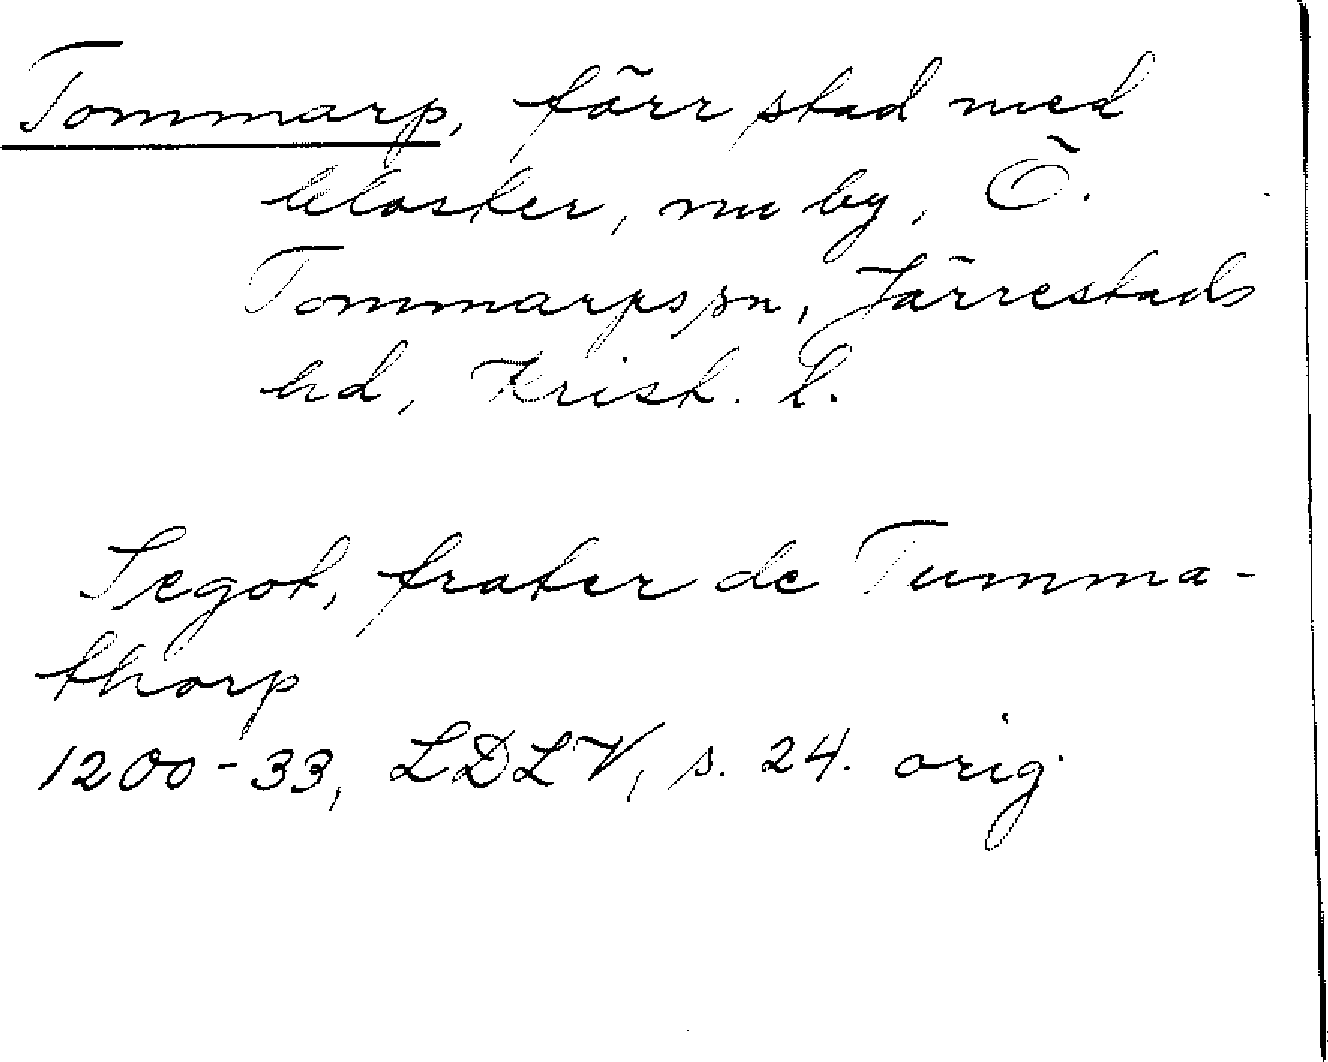 Tommarp, förr stad med
kloster, nu by, Ö.
Tommarps sn, Järrestads
hd, Krist. l.
Segot, frater de Tumma-
thorp
1200-33, LDLV, s. 24. orig.